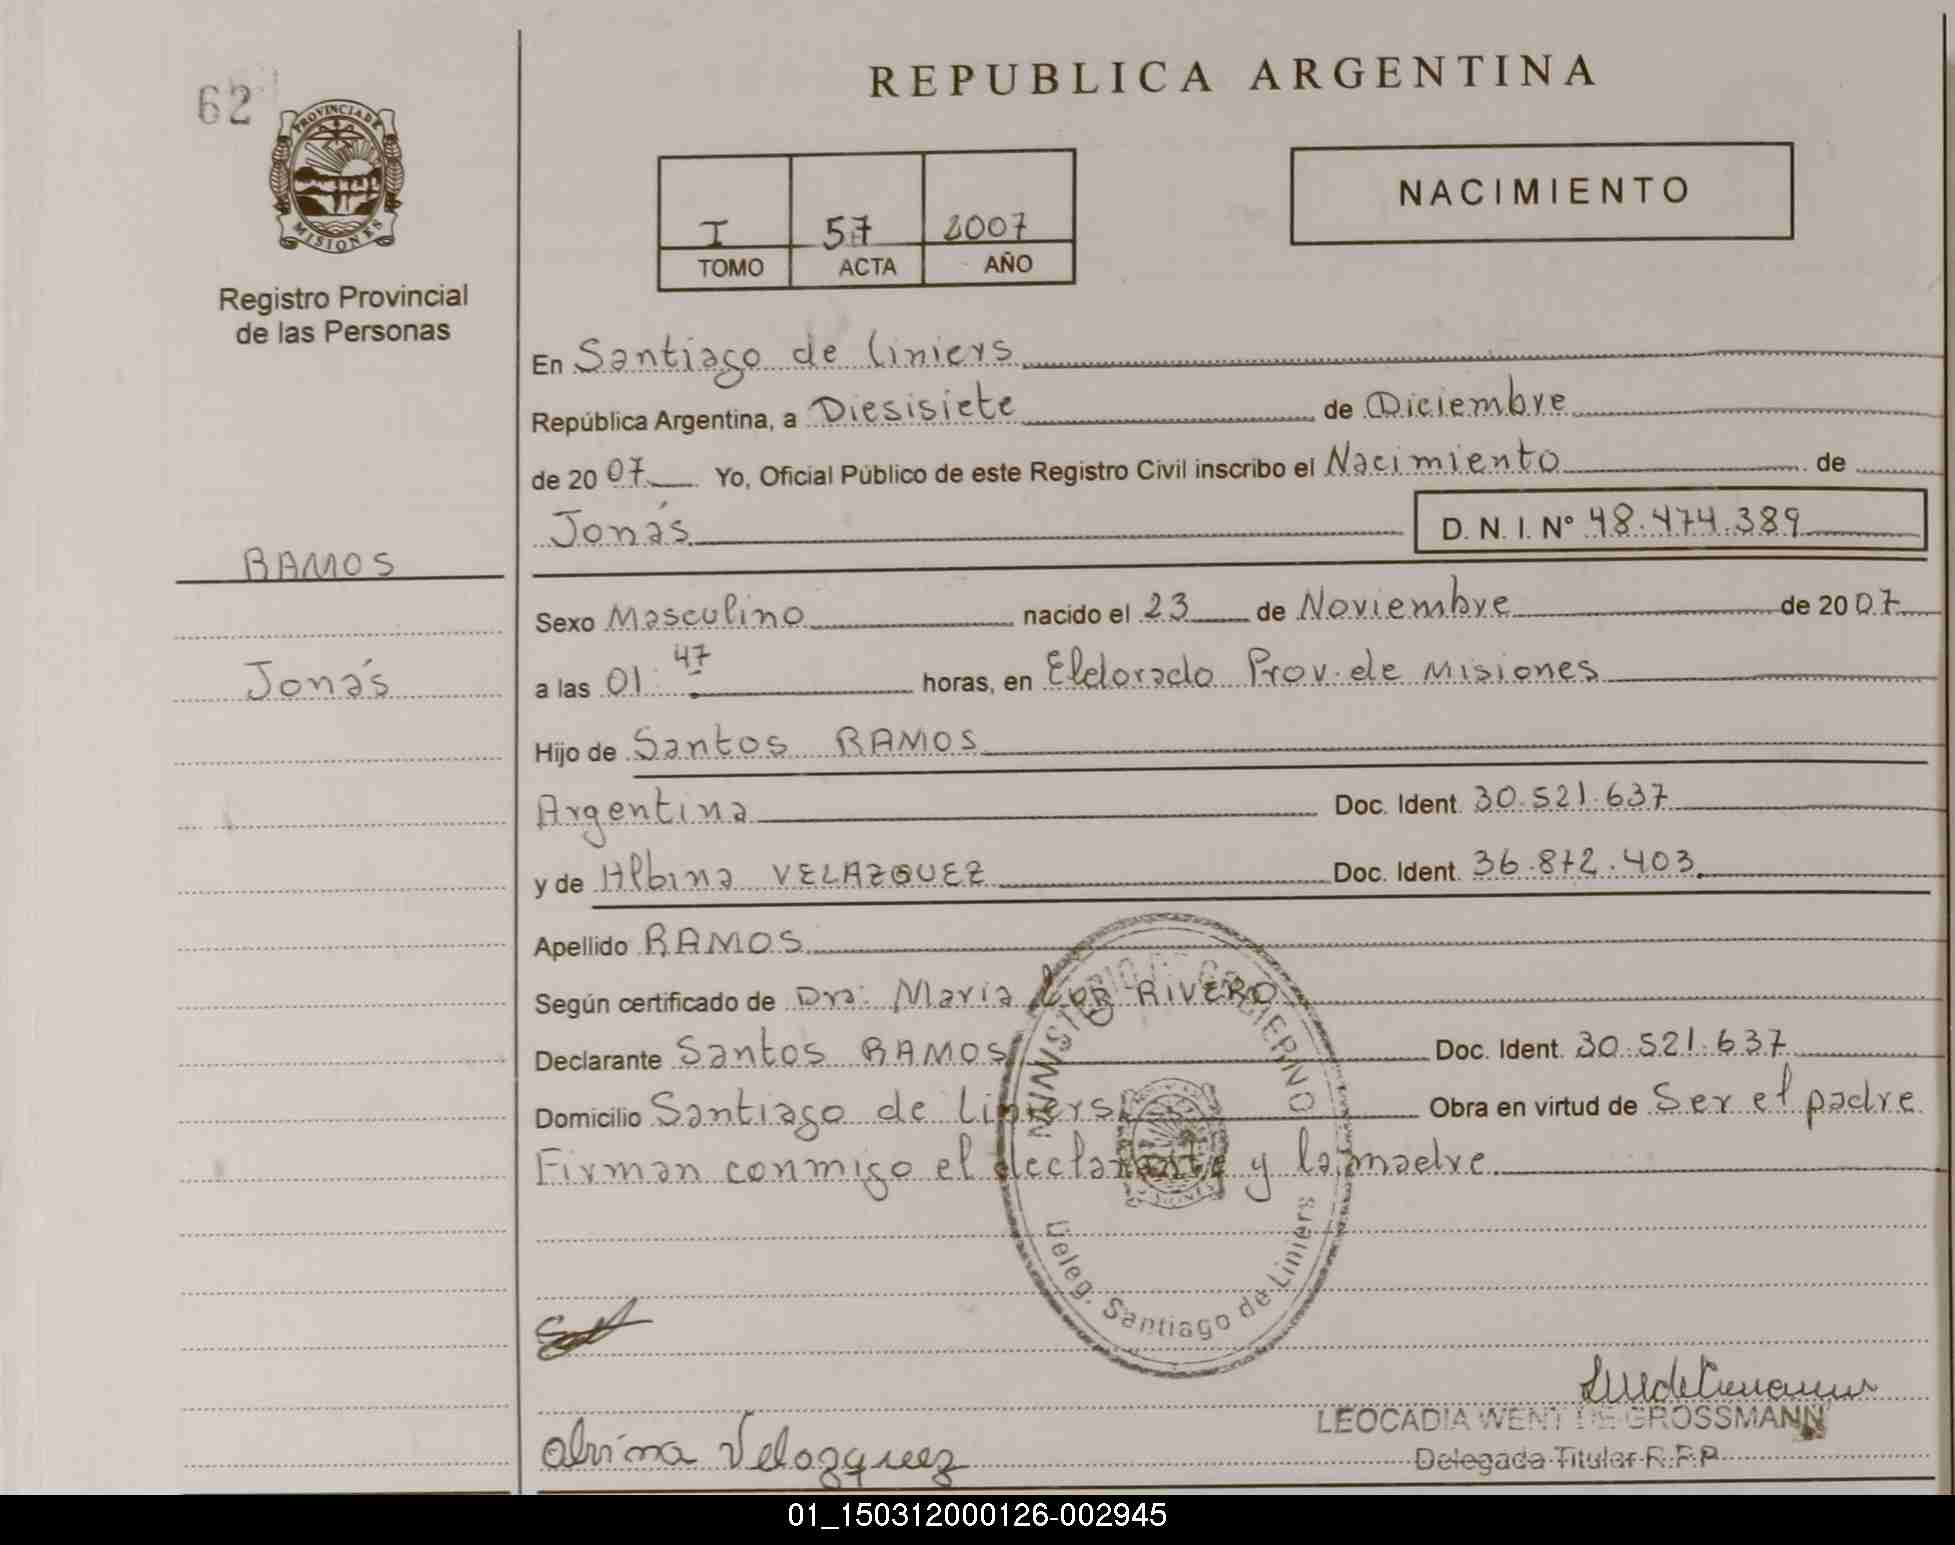 62
PROVINCIA DE
MISIONES
Registro Provincial
de las Personas
RAMOS
Jonás
REPUBLICA ARGENTINA
NACIMIENTO
I 57 2007
TOMO ACTA AÑO
En Santiago de Liniers
República Argentina, a Diesisiete de Diciembre
de 20 07 Yo, Oficial Público de este Registro Civil inscribo el Nacimiento de
Jonás D. N. I. Nº 48.474.389
Sexo Masculino nacido el 23 de Noviembre de 20 07
a las 01 47 horas, en Eldorado Prov. de Misiones
Hijo de Santos RAMOS
Argentina Doc. Ident. 30.521.637
y de Albina VELAZQUEZ Doc. Ident. 36.872.403
Apellido RAMOS
Según certificado de Dra: Maria RIVERO
Declarante Santos RAMOS Doc. Ident. 30.521.637
Domicilio Santiago de Liniers Obra en virtud de Ser el padre
Firman conmigo el declarante y la madre
MINISTERIO DE GOBIERNO
MISIONES
Deleg. Santiago de Liniers
LEOCADIA WENT DE GROSSMANN
Delegada Titular R.P.P.
Alvina Velazquez
01_150312000126-002945